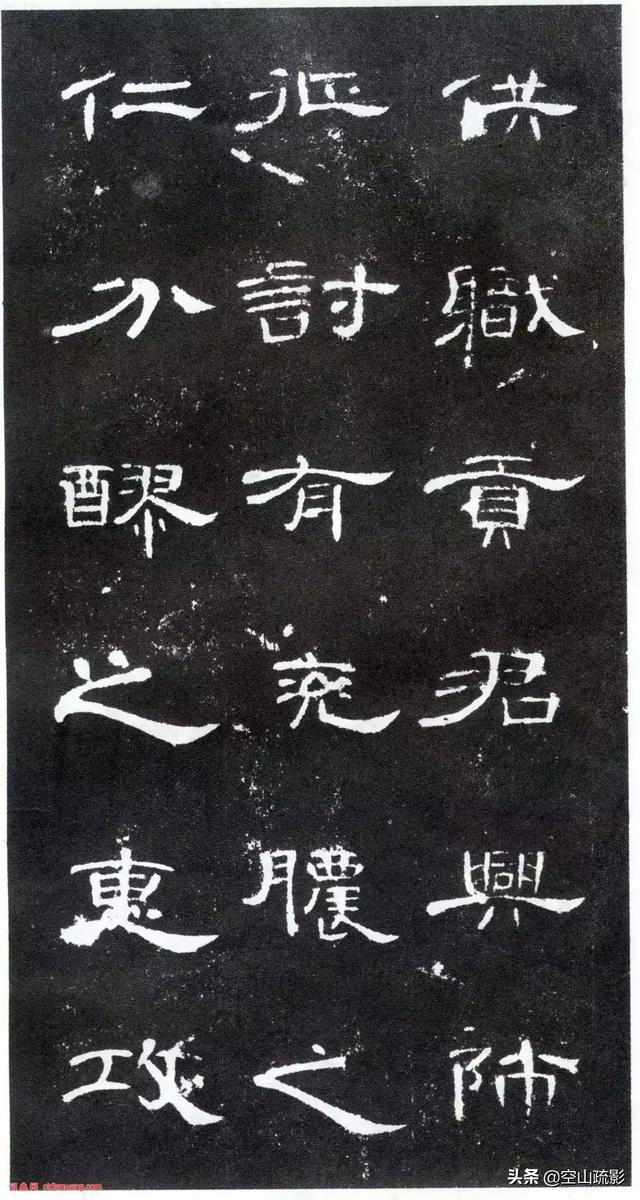 供職貢君興師
征討有兖膿之
仁分醪之惠攻
头条 @空山疏影